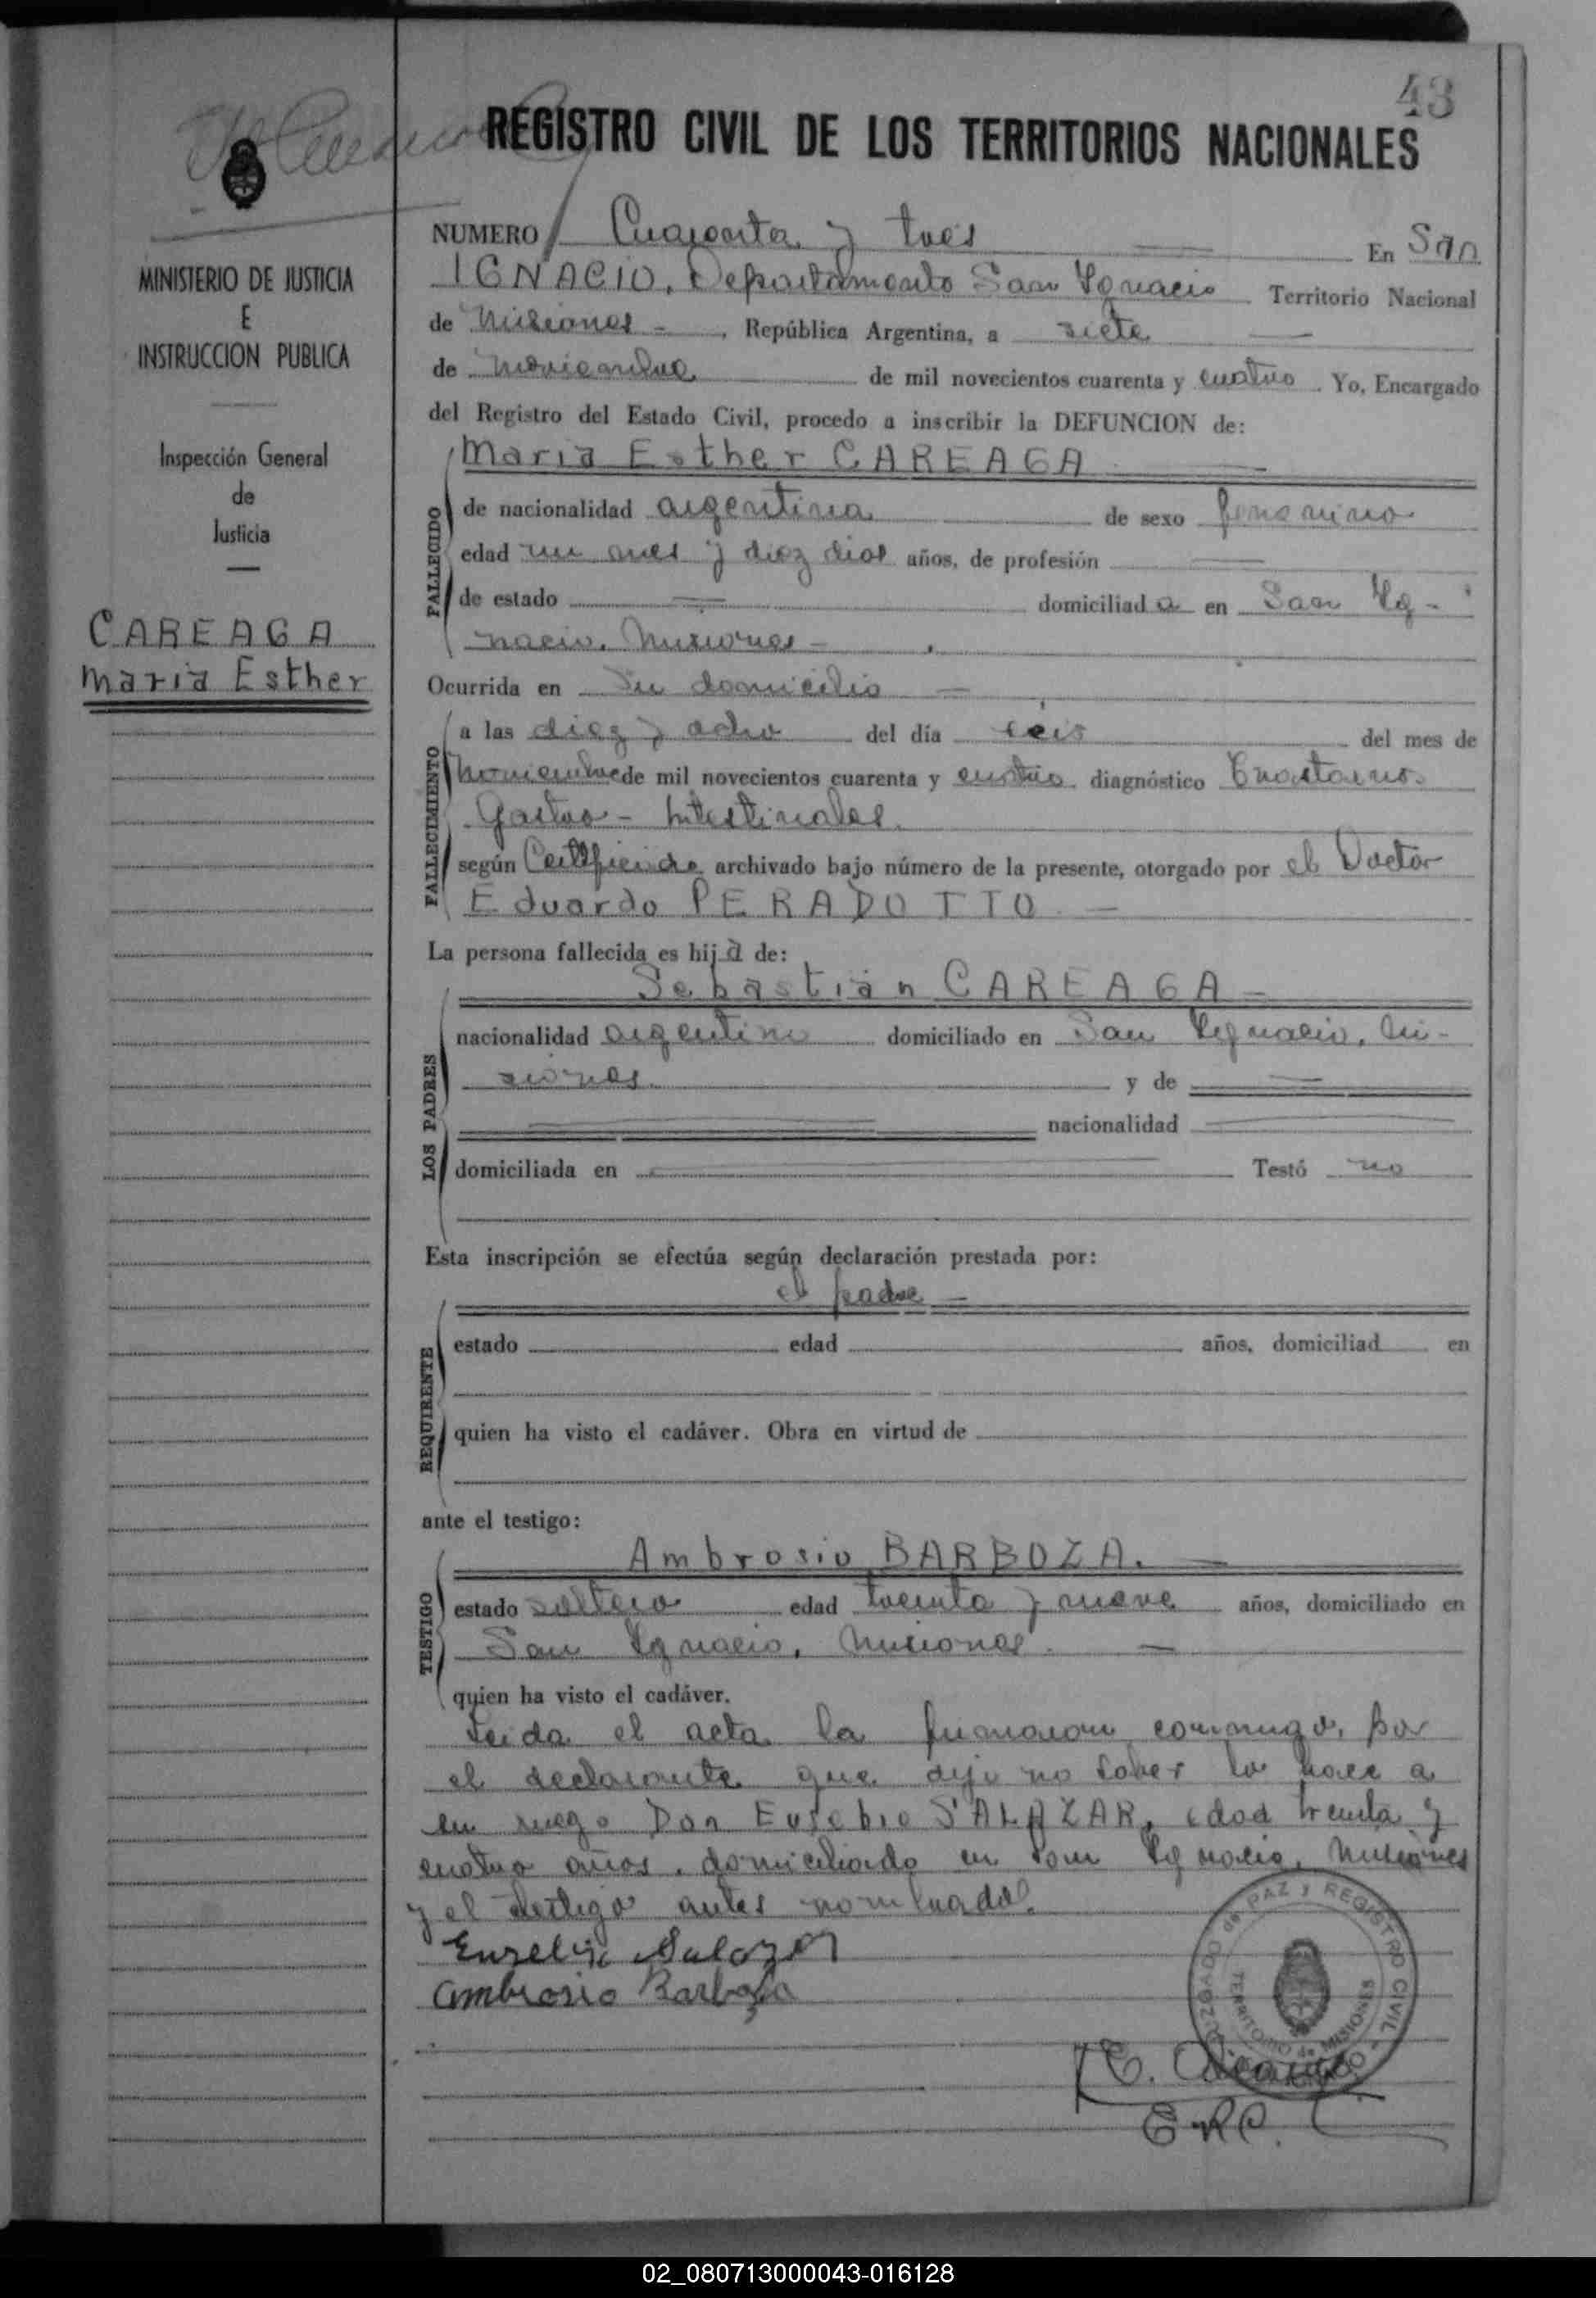 43
REGISTRO CIVIL DE LOS TERRITORIOS NACIONALES
MINISTERIO DE JUSTICIA
E
INSTRUCCION PUBLICA
Inspección General
de
Justicia
CAREAGA
Maria Esther
NUMERO Cuarenta y tres En San
IGNACIO, Departamento San Ignacio Territorio Nacional
de Misiones - , República Argentina, a siete
de Noviembre de mil novecientos cuarenta y cuatro . Yo, Encargado
del Registro del Estado Civil, procedo a inscribir la DEFUNCION de:
Maria Esther CAREAGA
FALLECIDO
de nacionalidad argentina de sexo femenino
edad un mes y diez dias años, de profesión
de estado domiciliada en San Ig-
nacio. Misiones -
Ocurrida en Su domicilio
FALLECIMIENTO
a las diez y ocho del día seis del mes de
Noviembre de mil novecientos cuarenta y cuatro. diagnóstico
Gastro - Intestinales.
según Certificado archivado bajo número de la presente, otorgado por el Doctor
Eduardo PERADOTTO. -
La persona fallecida es hija de:
LOS PADRES
Sebastián CAREAGA -
nacionalidad argentino domiciliado en San Ignacio, Mi-
siones. y de
nacionalidad
domiciliada en Testó no
Esta inscripción se efectúa según declaración prestada por:
REQUIRENTE
el padre -
estado edad años, domiciliad en
quien ha visto el cadáver. Obra en virtud de
ante el testigo:
TESTIGO
Ambrosio BARBOZA. -
estado soltero edad treinta y nueve años, domiciliado en
San Ignacio, Misiones. -
quien ha visto el cadáver.
Leida el acta la firmaron conmigo, por
el declarante que dijo no saber lo hace a
su ruego Don Eusebio SALAZAR, edad treinta y
cuatro años. domiciliado en San Ignacio, Misiones
y el testigo antes nombrado.
Eusebio Salazar
Ambrosio Barboza
JUZGADO de PAZ y REGISTRO CIVIL
TERRITORIO de MISIONES
E.R.C.
02_080713000043-016128